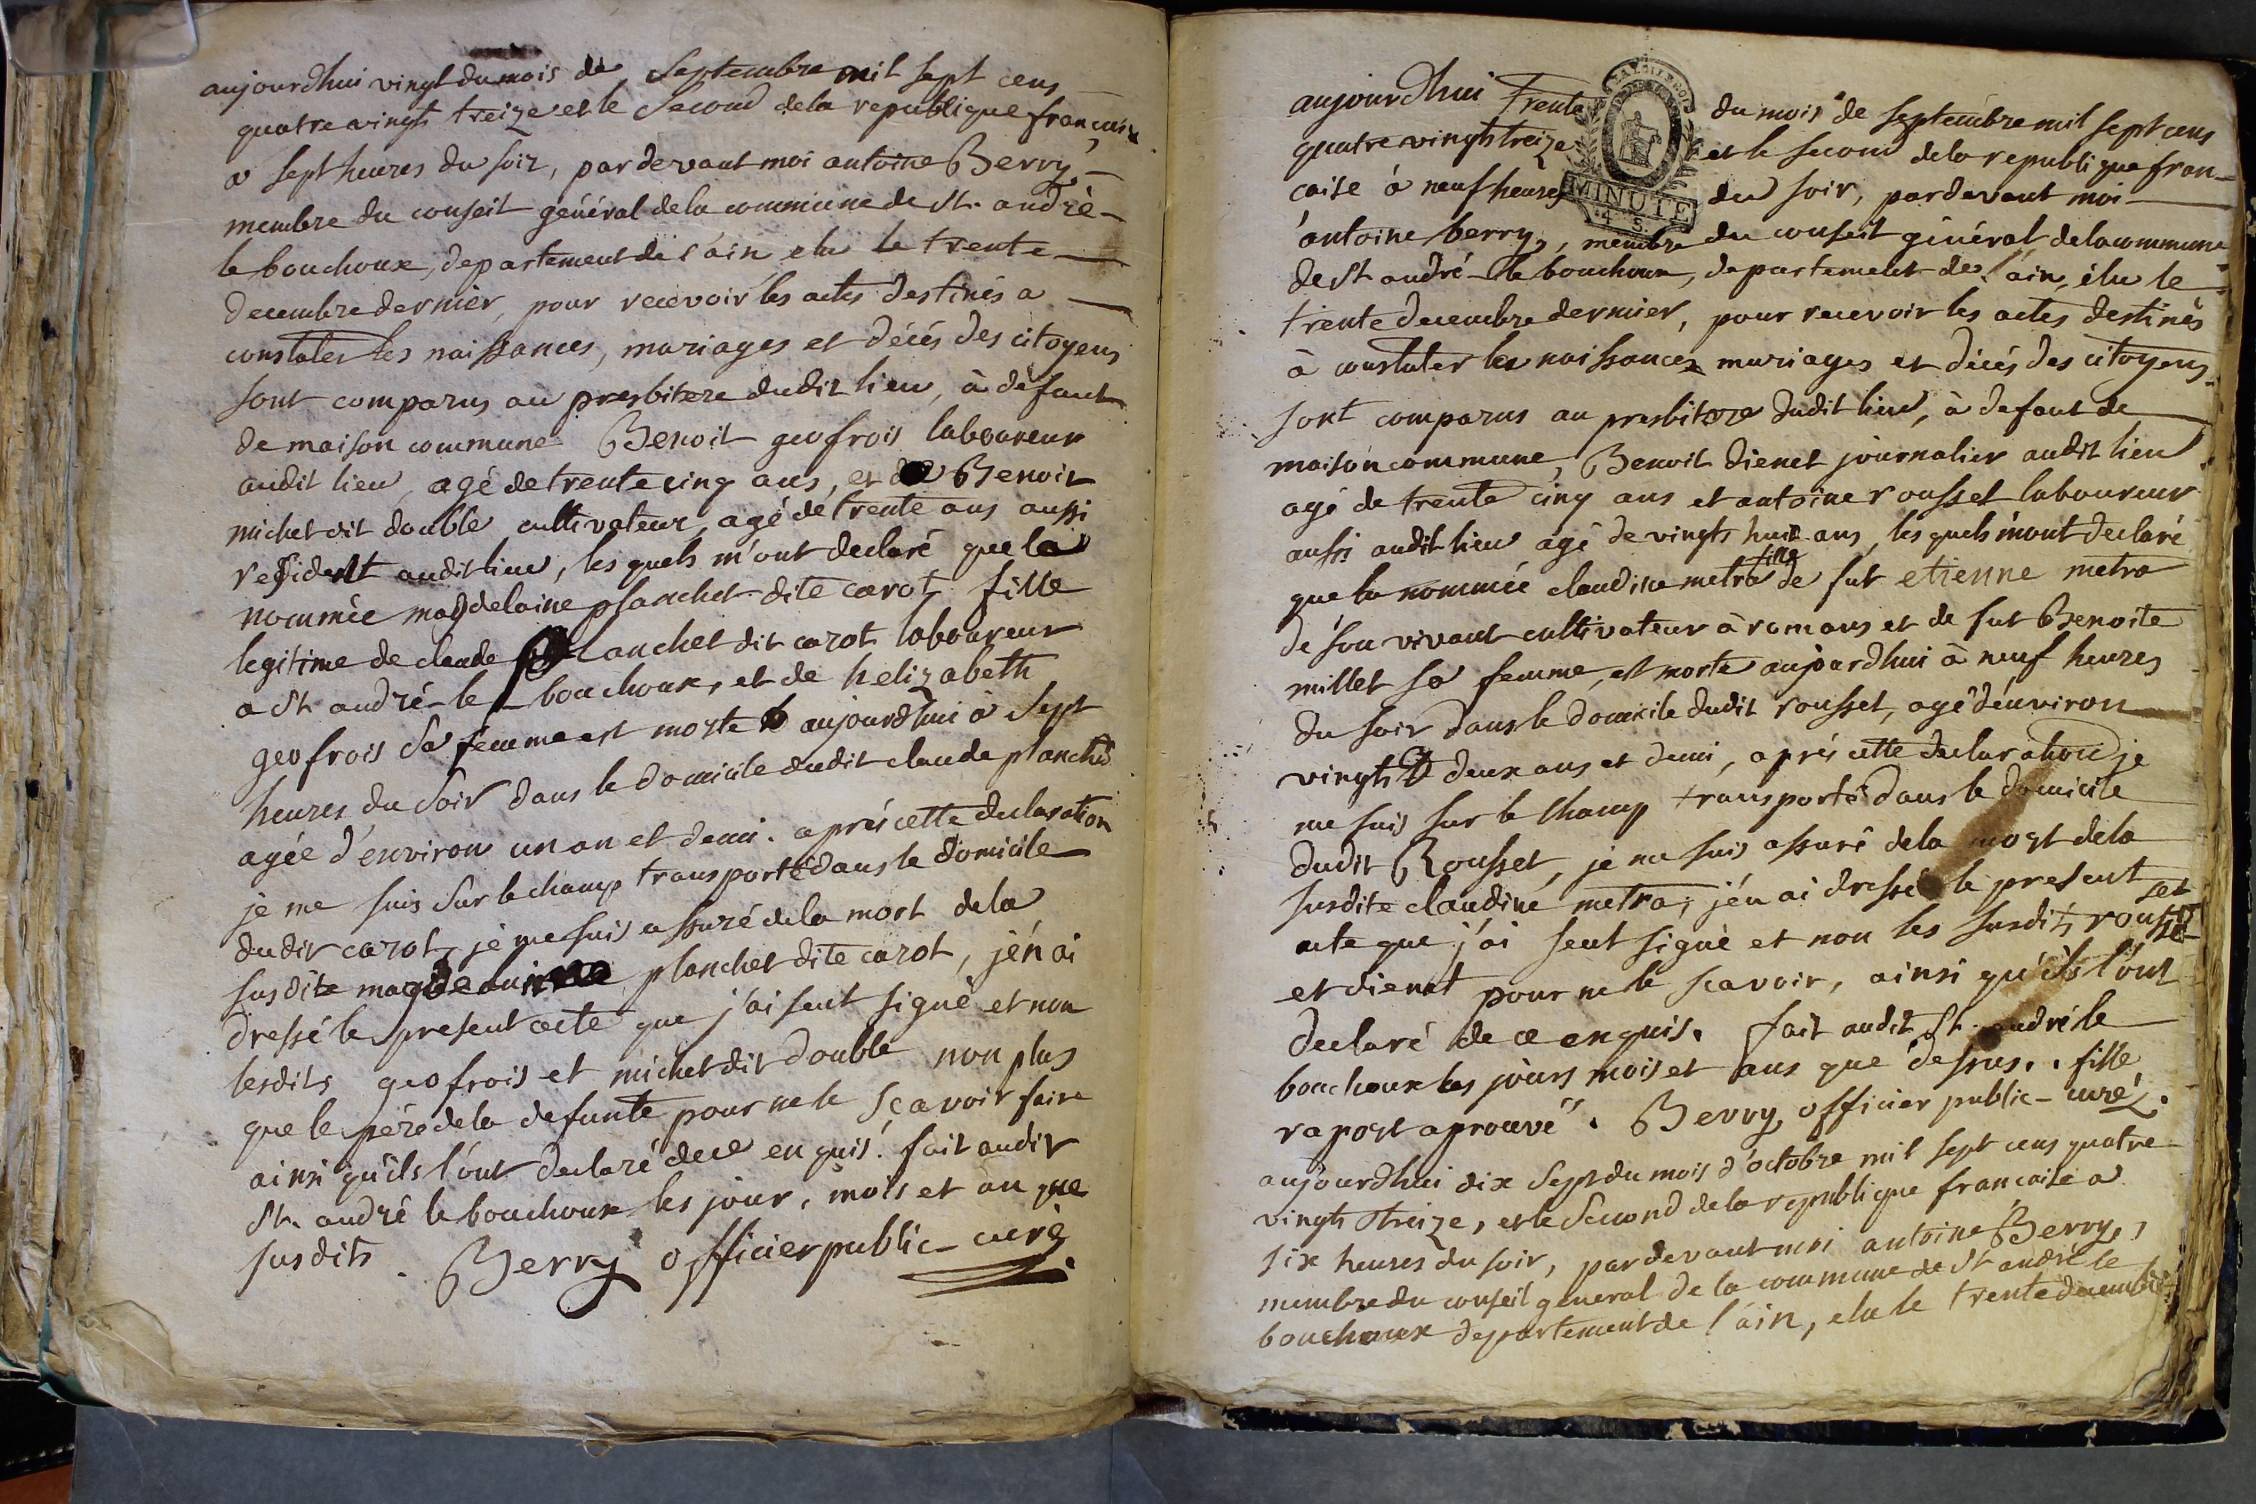 aujourdhui vingt du mois de Septembre mil sept cens
quatre vingts treize et le Second de la republique francaise
a sept heures du soir, pardevant moi antoine Berry,
membre du conseil général de la commune de St. andré-
le bouchoux, departement de l'ain elu le trente
decembre dernier, pour recevoir les actes destinés a
constater les naissances, mariages et décés des citoyens
sont comparus au presbitere dudit lieu, à defaut
de maison commune Benoit geofrois laboureur
audit lieu, agé de trente cinq ans, et Benoit
michet dit double cultivateur, agé de trente ans aussi
resident audit lieu, les quels m'ont declaré que la
nommée magdelaine planchet dite carot fille
legitime de claude planchet dit carot laboureur
a St andré-le bouchoux, et de helizabeth
geofrois sa femme est morte aujourdhui à sept
heures du soir dans le domicile dudit claude planchet
agée d'environ un an et demi. aprés cette declaration
je me suis sur le champ transporté dans le domicile
dudit carot, je me suis assuré de la mort de la
susdite magdelaine planchet dite carot, j'en ai
dressé le present acte que j'ai seul signé et non
lesdits geofrois et michet dit double non plus
que le pére de la defunte pour ne le sçavoir faire
ainsi qu'ils l'ont declaré de ce enquis. fait audit
St. andré le bouchoux les jour, mois et an que
susdits. Berry officier public - curé
aujourdhui trente du mois de septembre mil sept cens
quatre vingts treize et le second de la republique fran-
caise à neuf heures du soir, pardevant moi
MINUTE
4. S.
antoine berry, membre du conseil général de la commune
de St andré-le bouchoux, departement de l'ain, élu le
trente decembre dernier, pour recevoir les actes destinés
à constater les naissances mariages et décés des citoyens
sont comparus au presbitere dudit lieu, à defaut de
maison commune, Benoit dienet journalier audit lieu
agé de trente cinq ans et antoine rousset laboureur
aussi audit lieu agé de vingts huit ans, les quels m'ont declaré
que la nommée claudine metra fille de fut etienne metra
de son vivant cultivateur à romans et de fut Benoite
millet sa femme, est morte aujourdhui à neuf heures
du soir dans le domicile dudit rousset, agé d'environ
vingts deux ans et demi, aprés cette declaration je
me suis sur le champ transporté dans le domicile
dudit Rousset, je me suis assuré de la mort de la
susdite claudine metra, j'en ai dressé le present
acte que j'ai seul signé et non les susdits rousset
et dienet pour ne le scavoir, ainsi qu'ils l'ont
declaré de ce enquis. fait audit St. andré le
bouchoux les jours mois et ans que dessus.. fille
raport aprouvé. Berry officier public - curé.
aujourdhui dix sept du mois d'octobre mil sept cens quatre
vingts treize, et le Second de la republique francaise a
six heures du soir, pardevant moi antoine Berry,
membre du conseil general de la commune de St andré le
bouchoux departement de l'ain, elu le trente decembre